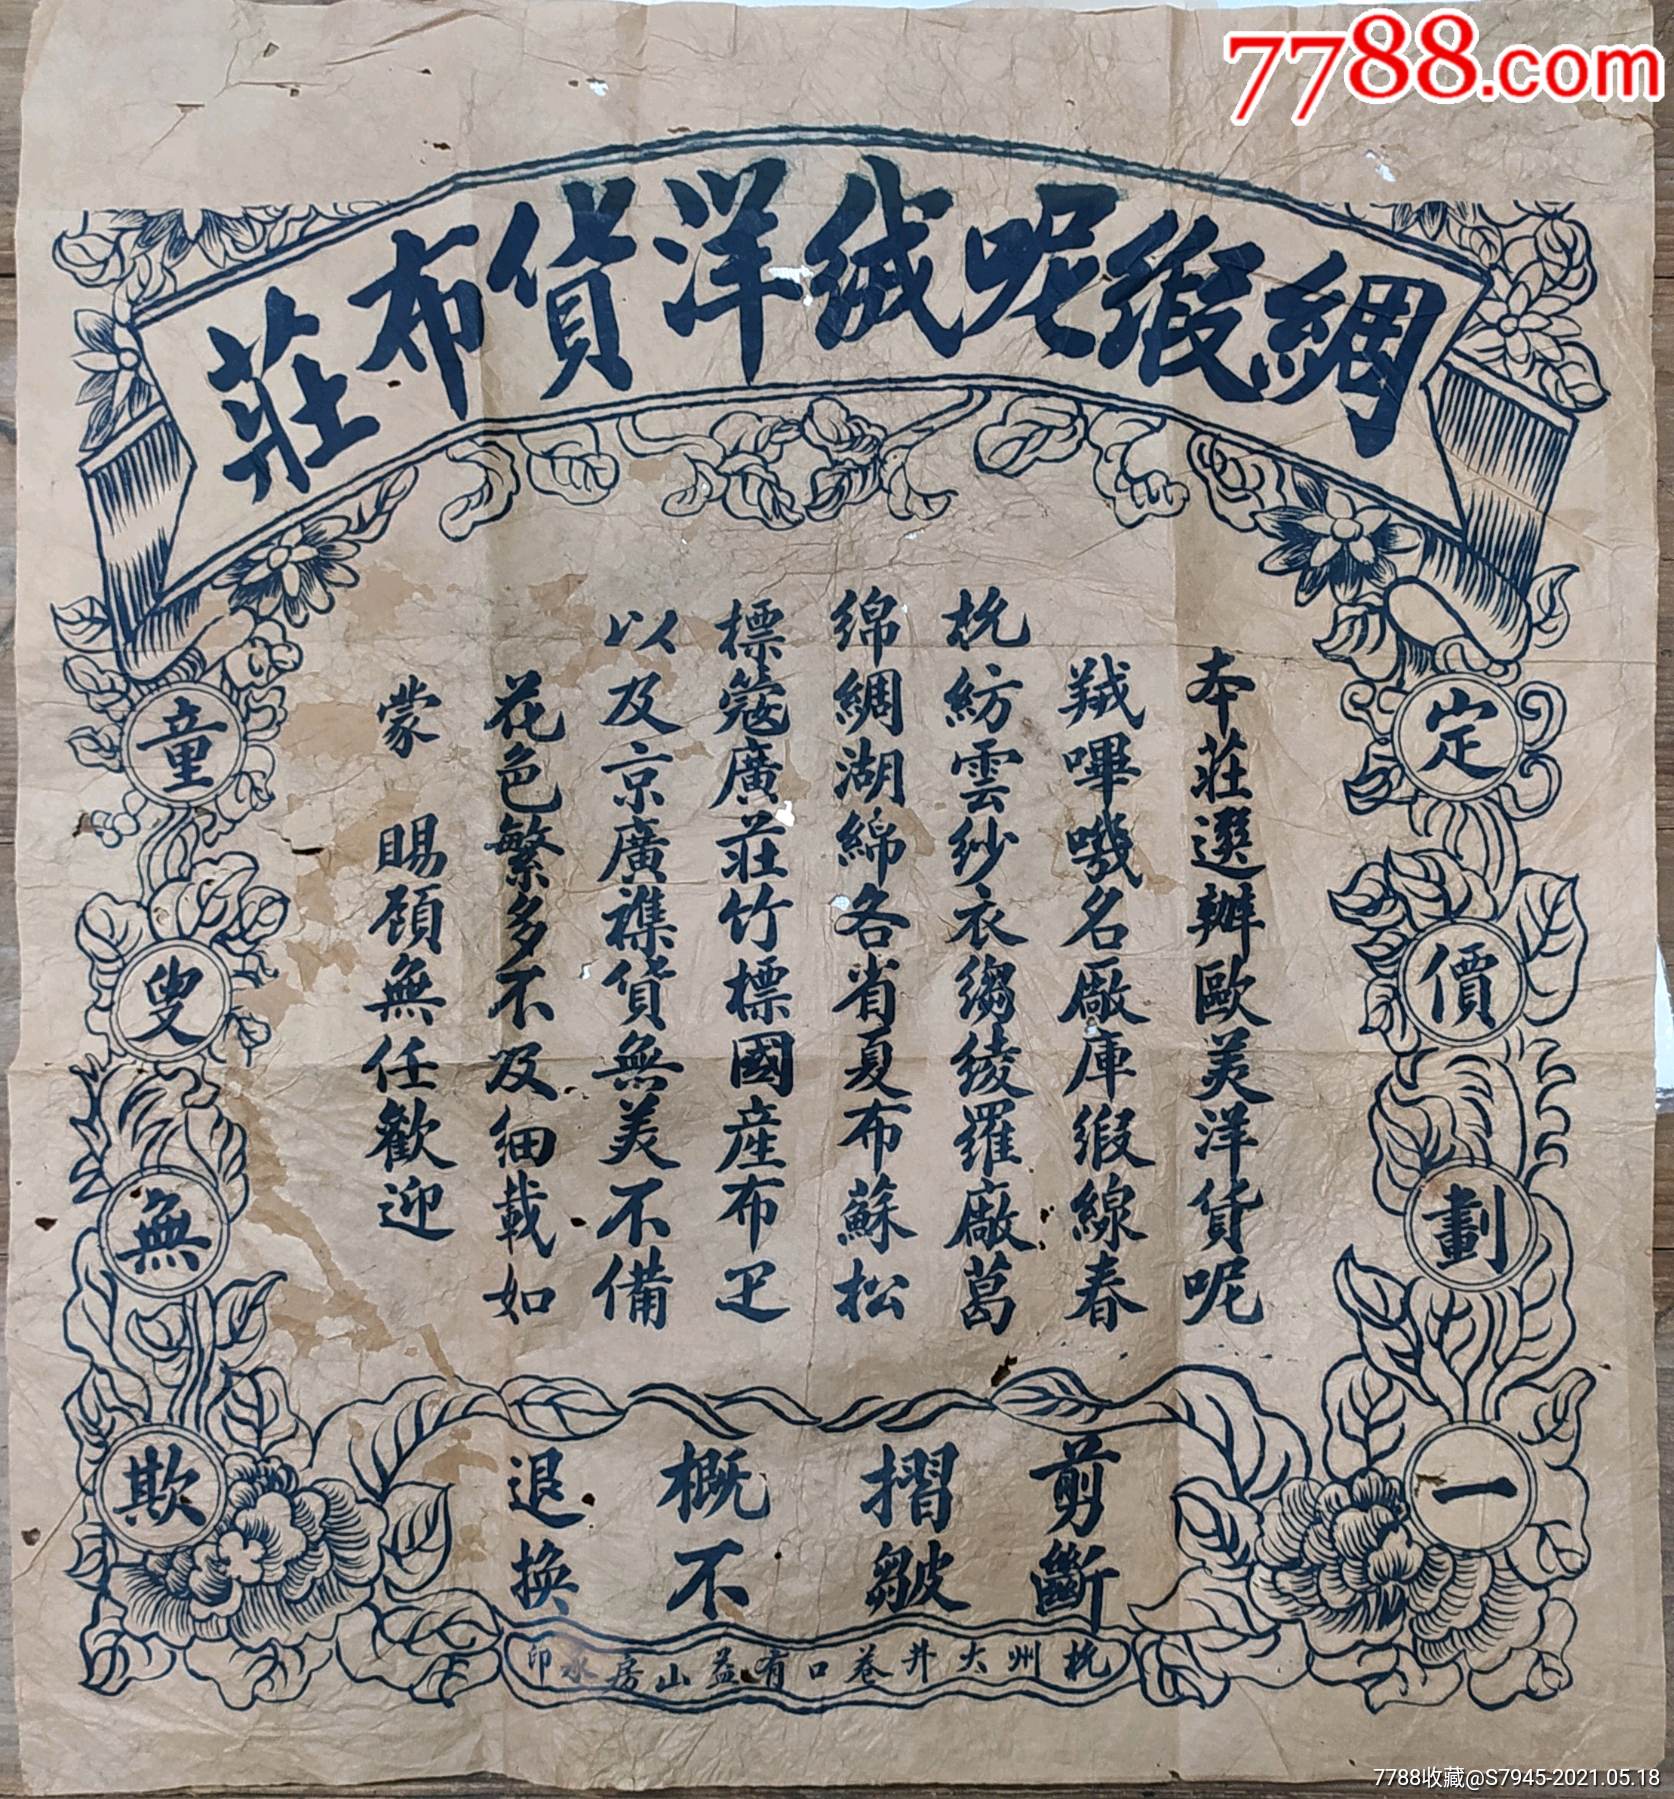 7788.com
綢緞呢絨洋貨布莊
定價劃一
本莊選辦歐美洋貨呢
羢嗶嘰名廠庫緞線春
杭紡雲紗衣縐綾羅廠葛
綿綢湖綿各省夏布蘇松
標蔻廣莊竹標國産布疋
以及京廣襍貨無美不備
花色繁多不及細載如
蒙 賜顧無任歡迎
童叟無欺
剪斷
摺皺
概不
退換
杭州大井巷口有益山房水印
7788收藏@S7945-2021.05.18